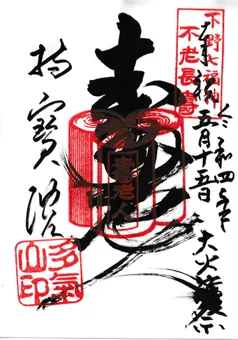 下野七福神
不老長寿
奉拝
令和四年
五月十五日
大火渡祭
寿
寿老人
持寶院
多氣山印